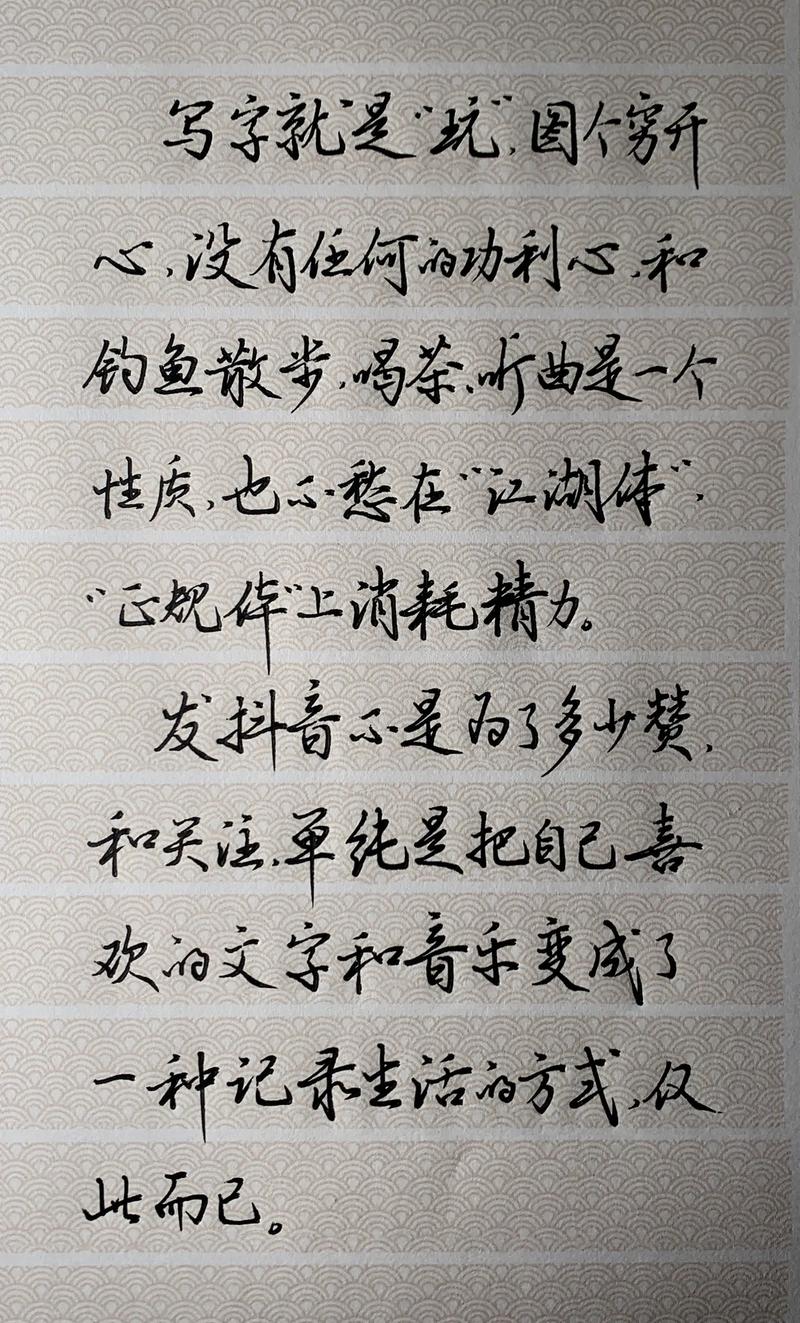 写字就是“玩”,图个穷开
心,没有任何的功利心,和
钓鱼散步,喝茶,听曲是一个
性质,也不愁在“江湖体”,
“正规体”上消耗精力。
发抖音不是为了多少赞,
和关注,单纯是把自己喜
欢的文字和音乐变成了
一种记录生活的方式,仅
此而已。